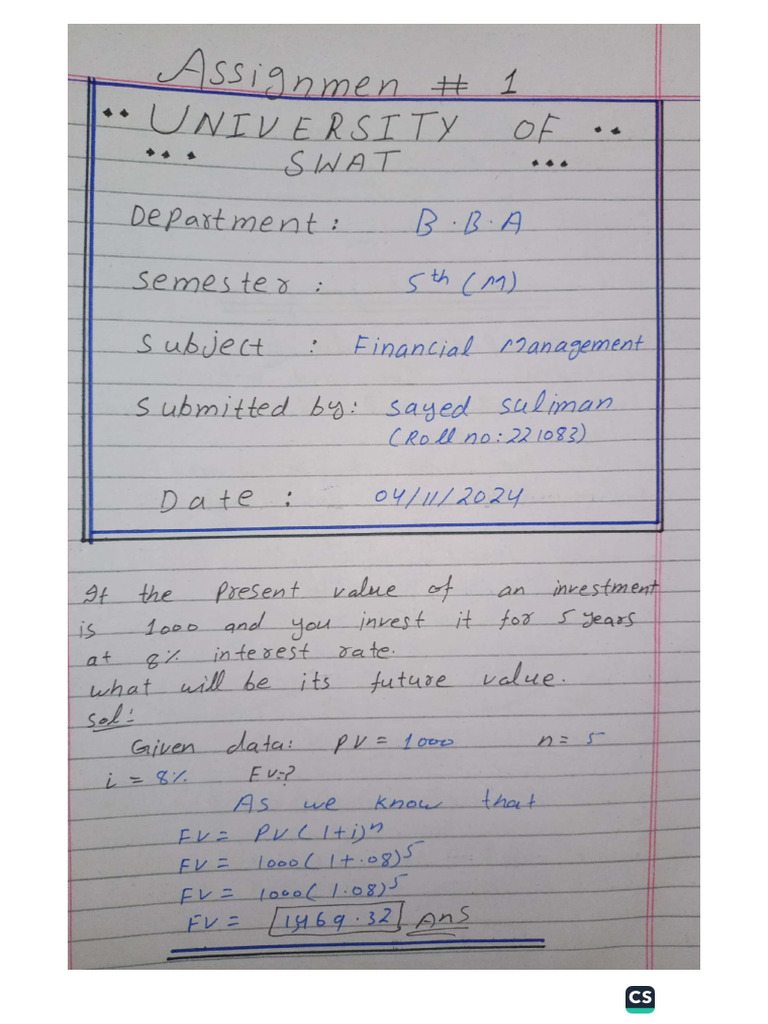 Assignmen # 1
UNIVERSITY OF
SWAT
Department: B.B.A
Semester: 5th (M)
Subject: Financial Management
Submitted by: Sayed Suliman
(Roll no: 221083)
Date: 04/11/2024
If the Present value of an investment
is 1000 and you invest it for 5 years
at 8% interest rate.
what will be its future value.
Sol:
Given data: PV = 1000 n = 5
i = 8% FV=?
As we know that
FV = PV(1+i)ⁿ
FV = 1000(1+.08)⁵
FV = 1000(1.08)⁵
FV = 1469.32 Ans
CS